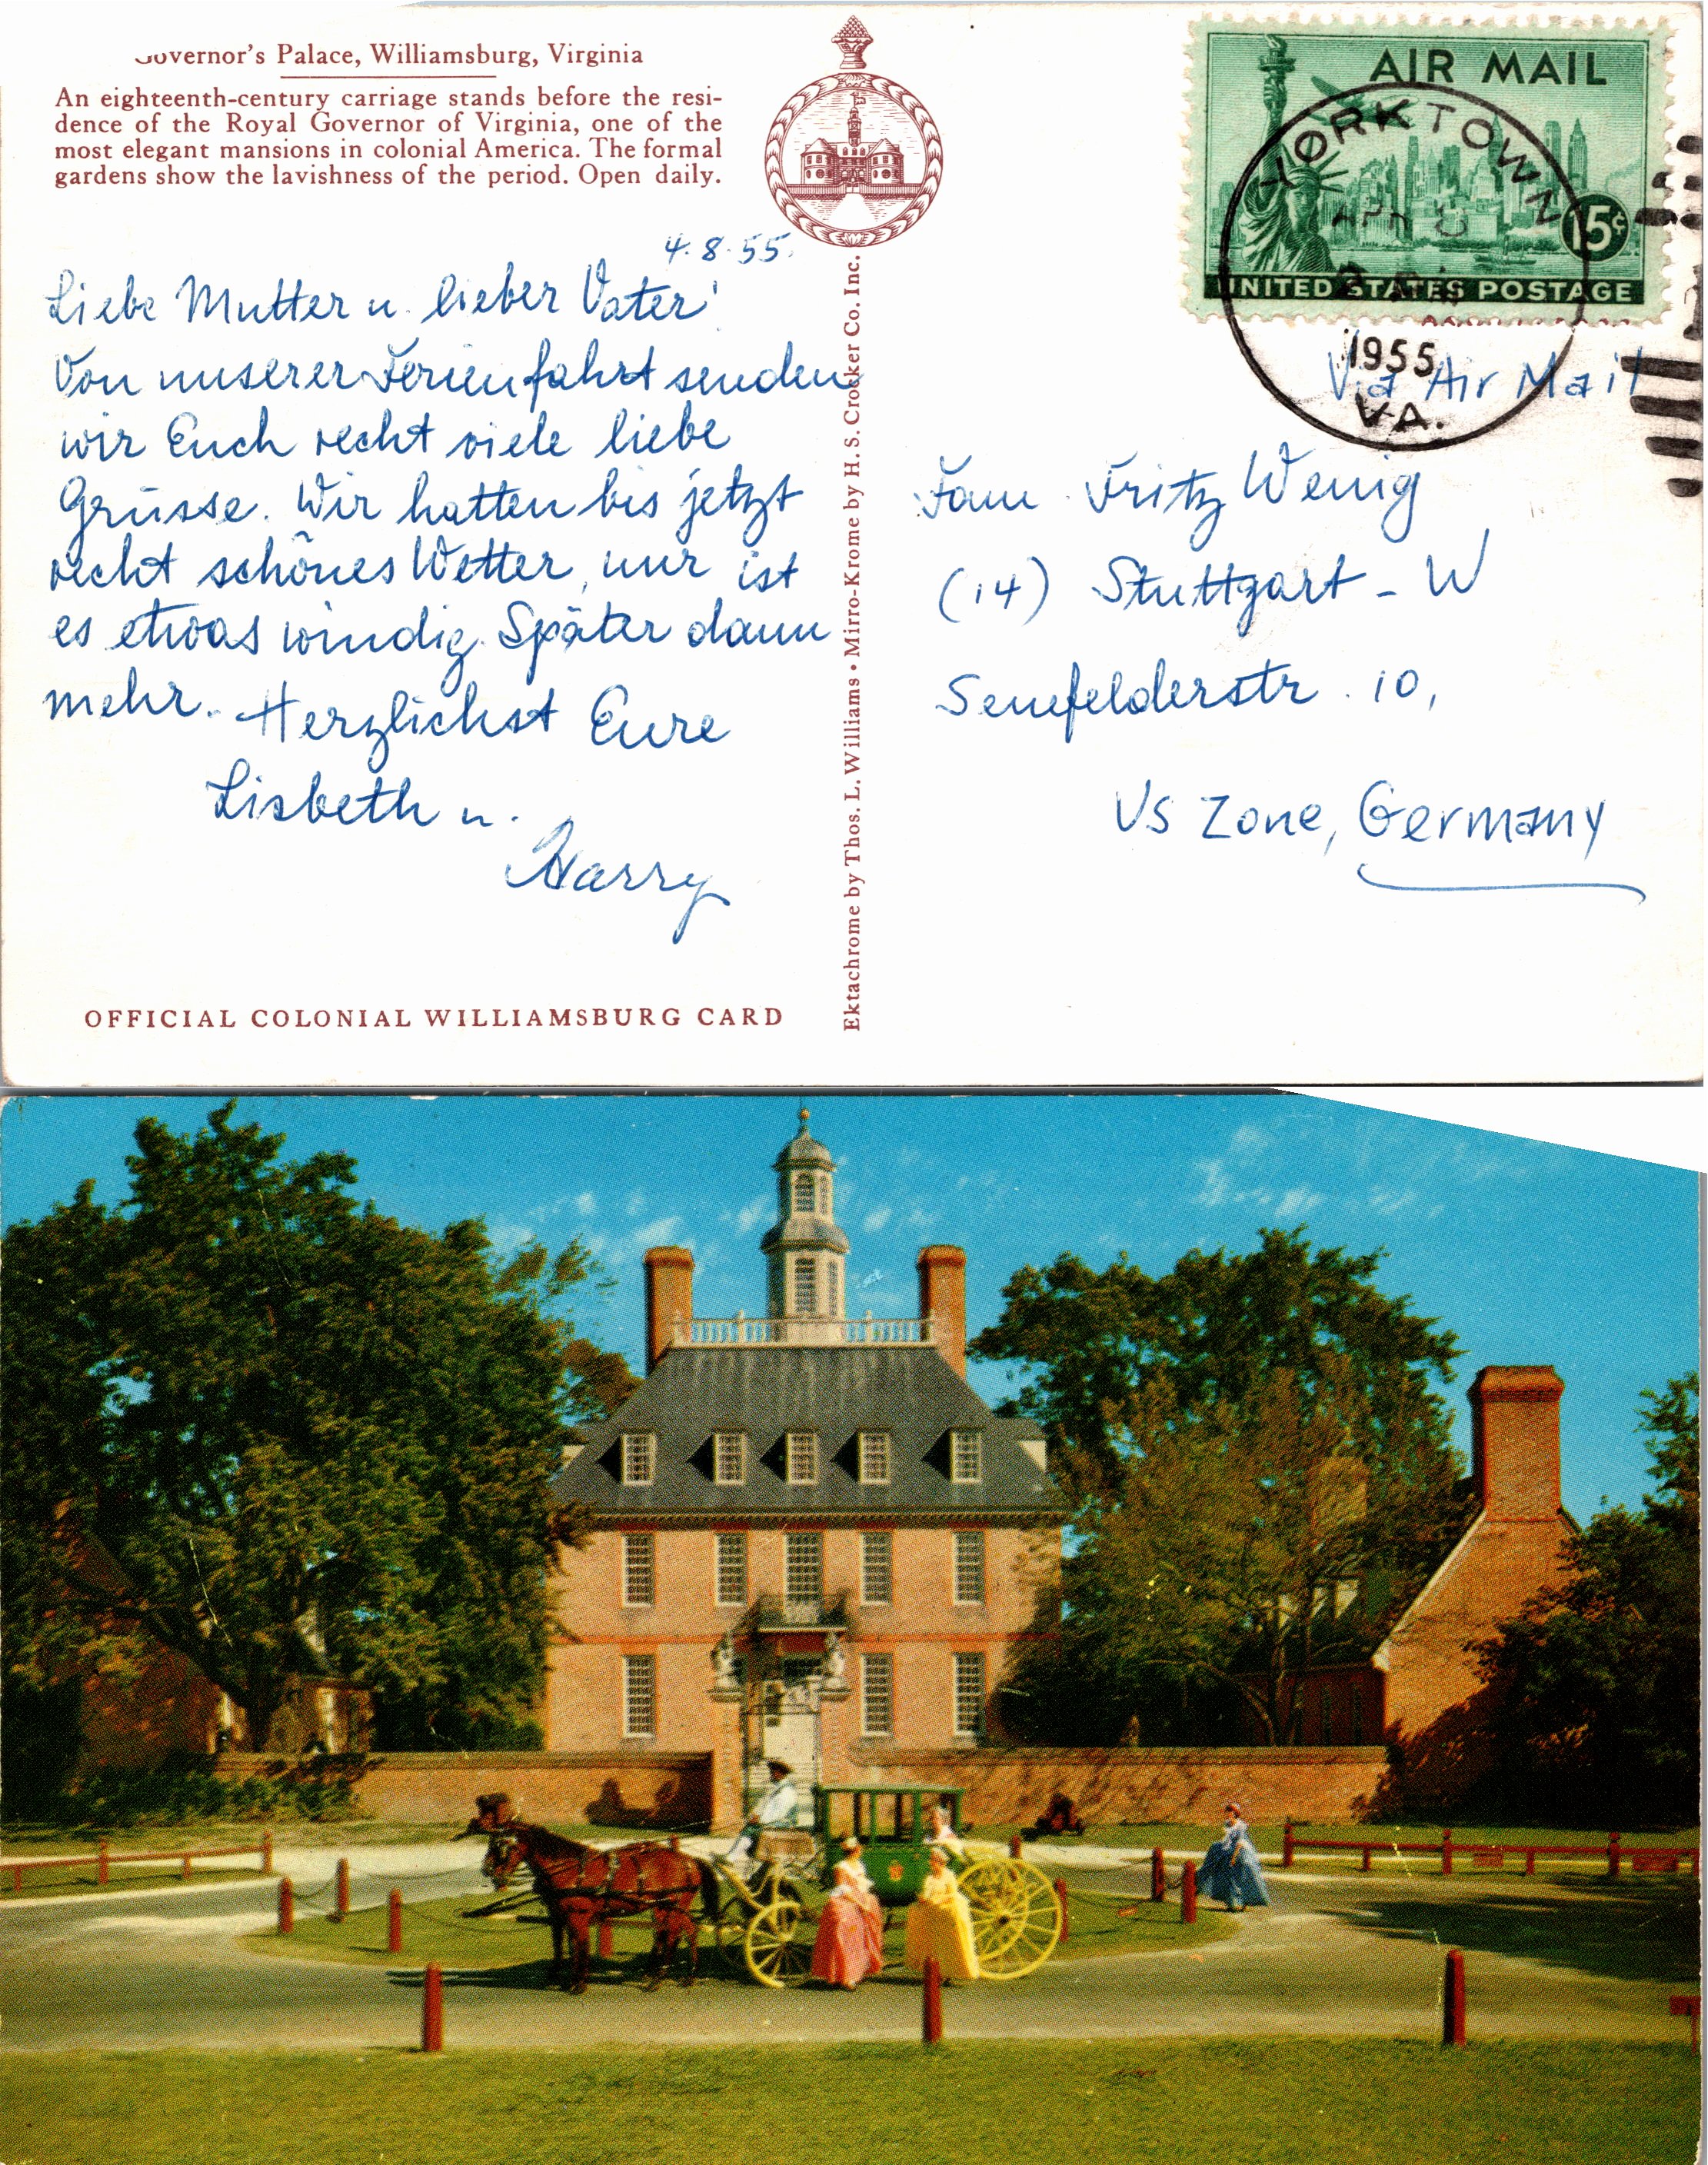 Governor's Palace, Williamsburg, Virginia
An eighteenth-century carriage stands before the resi-
dence of the Royal Governor of Virginia, one of the
most elegant mansions in colonial America. The formal
gardens show the lavishness of the period. Open daily.
4.8.55.
Liebe Mutter u. lieber Vater!
Von unserer Ferienfahrt senden
wir Euch recht viele liebe
Grüsse. Wir hatten bis jetzt
recht schönes Wetter, nur ist
es etwas windig. Später dann
mehr. Herzlichst Eure
Lisbeth u.
Harry
OFFICIAL COLONIAL WILLIAMSBURG CARD
Ektachrome by Thos. L. Williams • Mirro-Krome by H. S. Crocker Co. Inc.
AIR MAIL
15¢
UNITED STATES POSTAGE
YORKTOWN
APR 8
1955
VA.
Via Air Mail
Fam. Fritz Wenig
(14) Stuttgart - W
Senefelderstr. 10,
US Zone, Germany